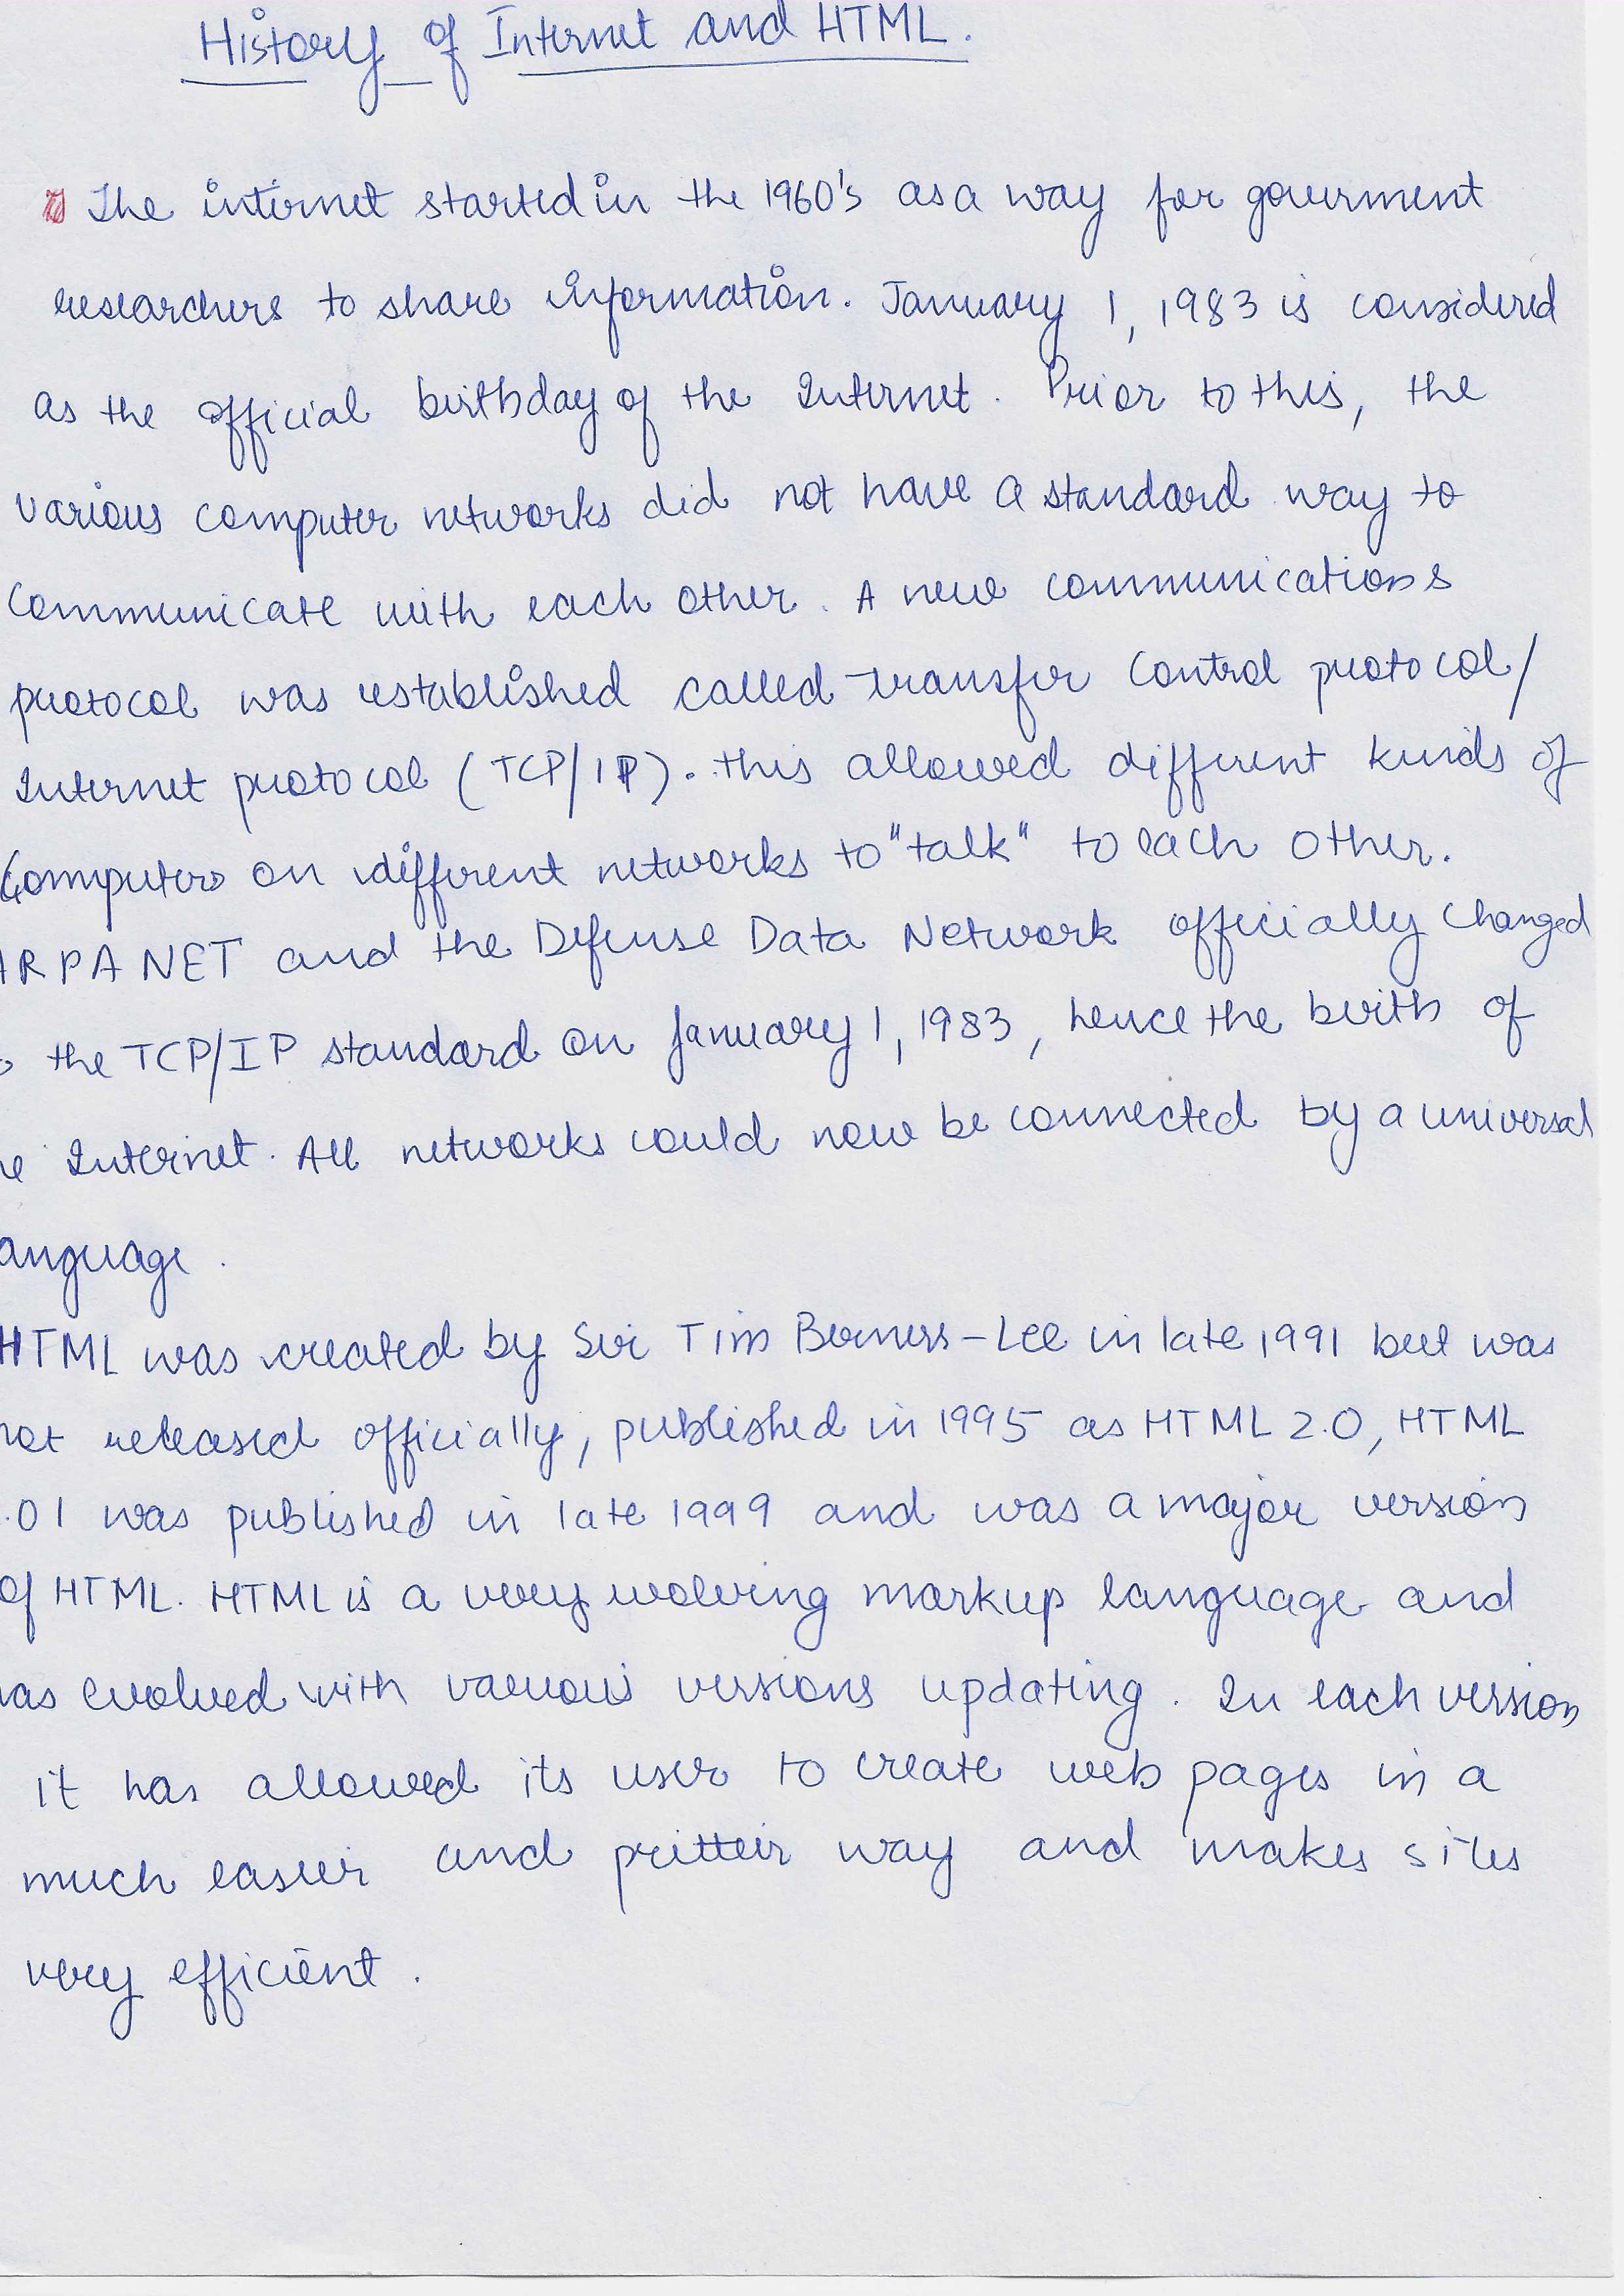 History of Internet and HTML.
The internet started in the 1960's as a way for goverment
researchers to share information. January 1, 1983 is considered
as the official birthday of the Internet. Prior to this, the
various computer networks did not have a standard way to
communicate with each other. A new communications
protocol was established called transfer control protocol/
Internet protocol (TCP/IP). this allowed different kinds of
computers on different networks to "talk" to each other.
ARPANET and the Defense Data Network officially changed
the TCP/IP standard on January 1, 1983, hence the birth of
Internet. All networks could now be connected by a universal
anguage.
HTML was created by Sir Tim Berners-Lee in late 1991 but was
not released officially, published in 1995 as HTML 2.0, HTML
.01 was published in late 1999 and was a major version
of HTML. HTML is a very evolving markup language and
as evolved with various versions updating. In each version
it has allowed its user to create web pages in a
much easier and prettier way and makes sites
very efficient.